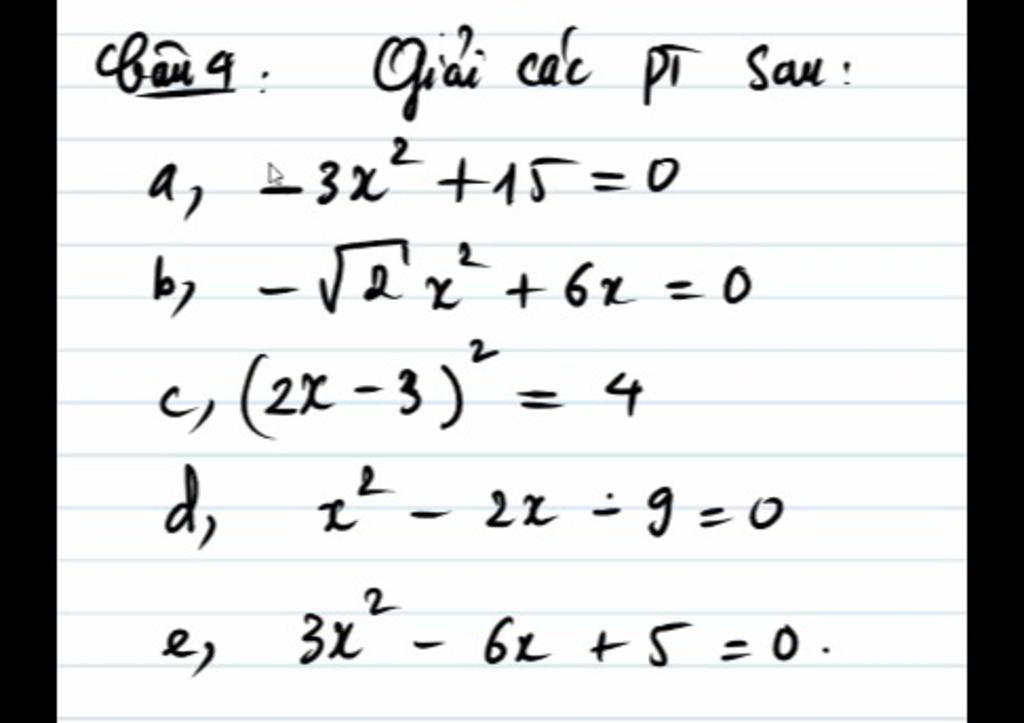 Câu 4: Giải các PT sau:
a, -3x² + 15 = 0
b, -√2 x² + 6x = 0
c, (2x - 3)² = 4
d, x² - 2x - 9 = 0
e, 3x² - 6x + 5 = 0.